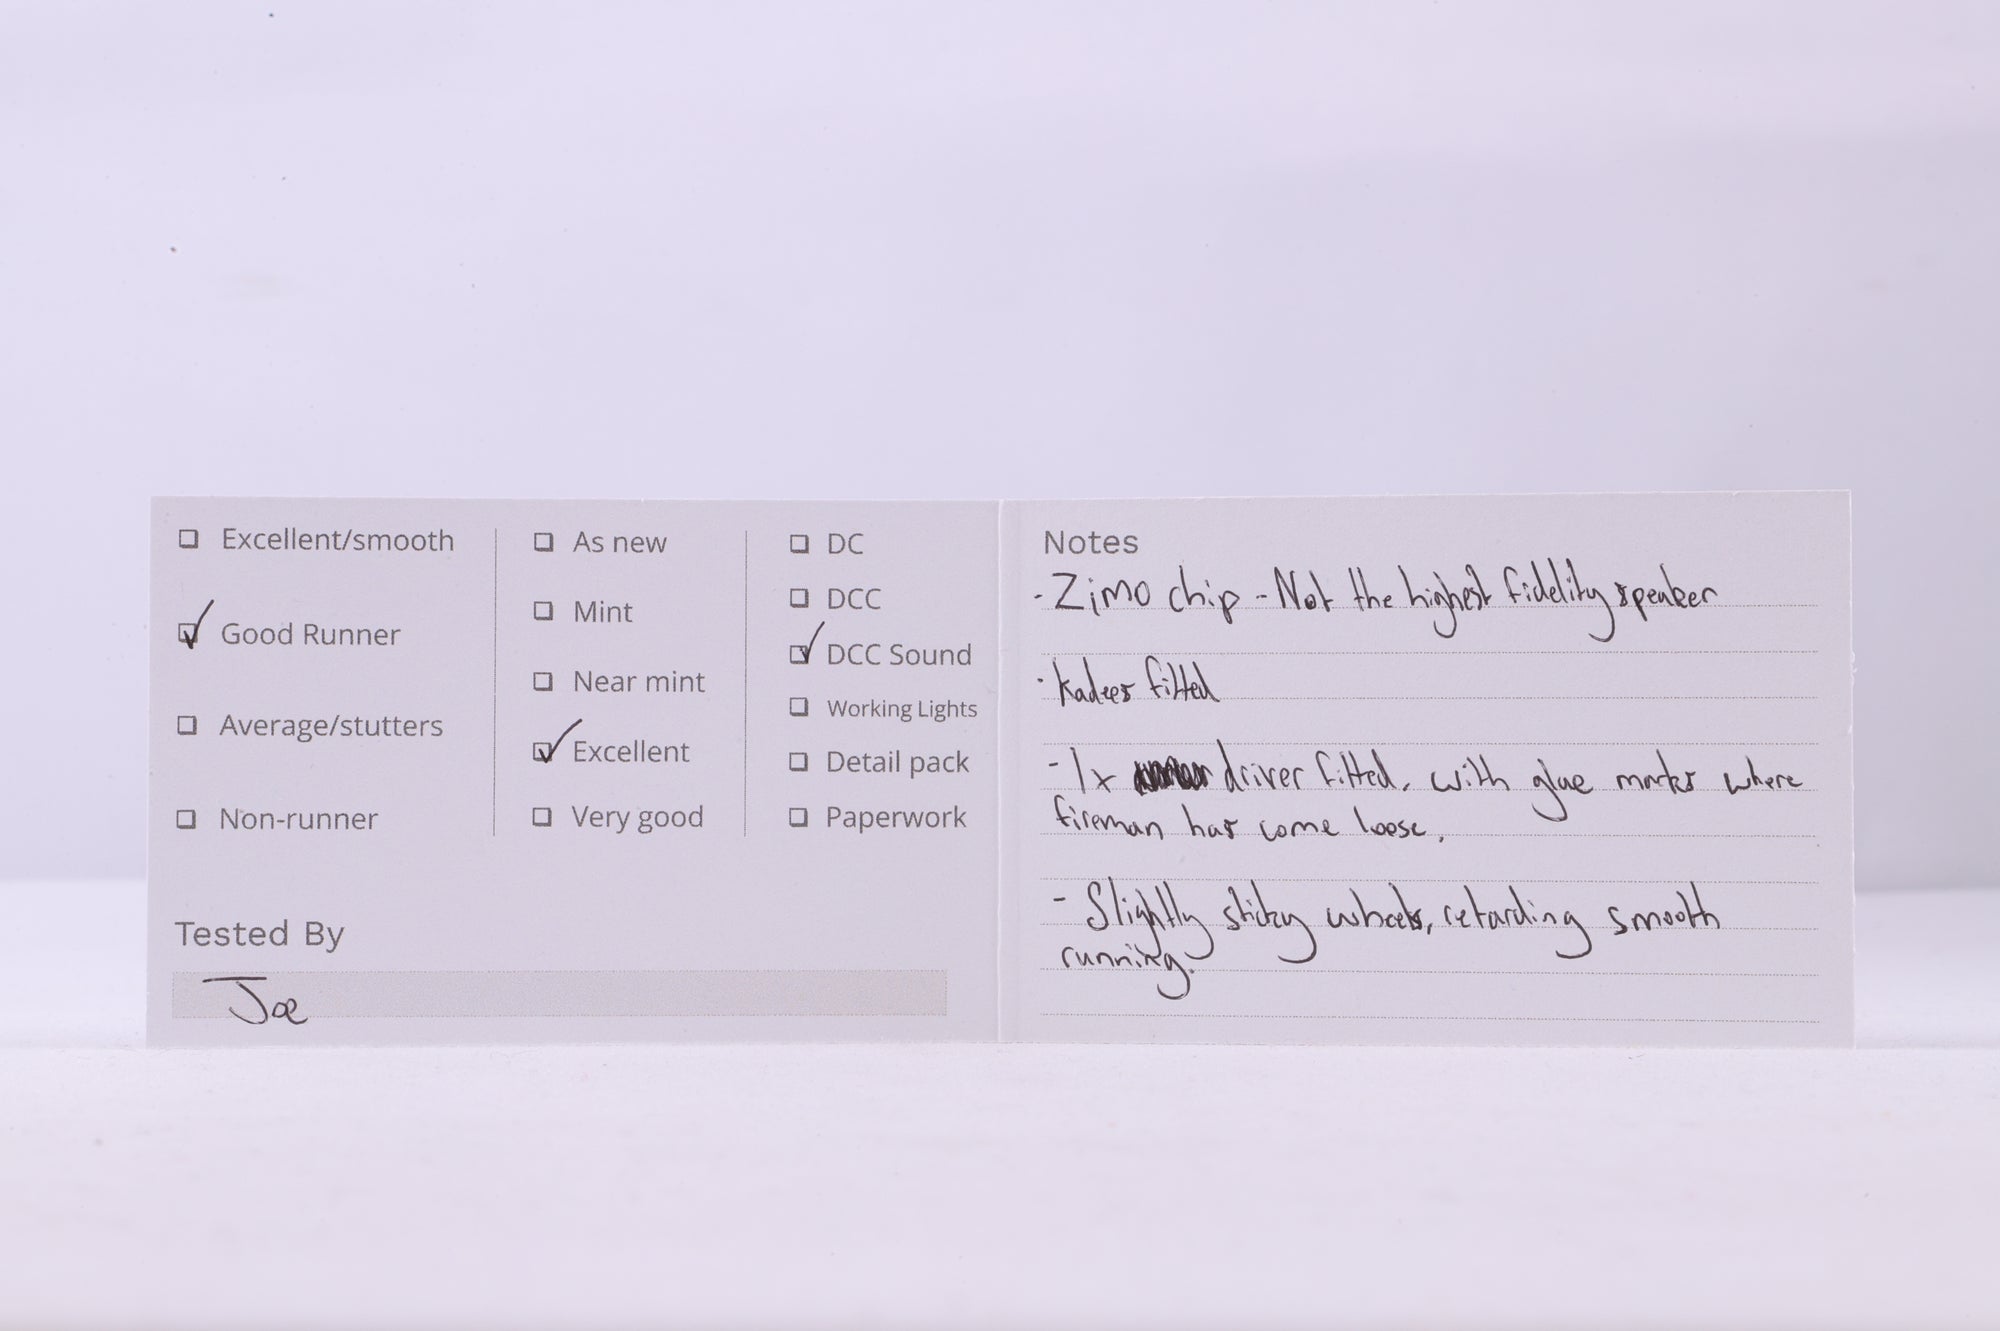 Excellent/smooth
Good Runner
Average/stutters
Non-runner
As new
Mint
Near mint
Excellent
Very good
DC
DCC
DCC Sound
Working Lights
Detail pack
Paperwork
Tested By
Joe
Notes
- Zimo chip - Not the highest fidelity speaker
- Kadees fitted
- 1x driver fitted, with glue marks where
fireman has come loose.
- Slightly sticky wheels, retarding smooth
running.